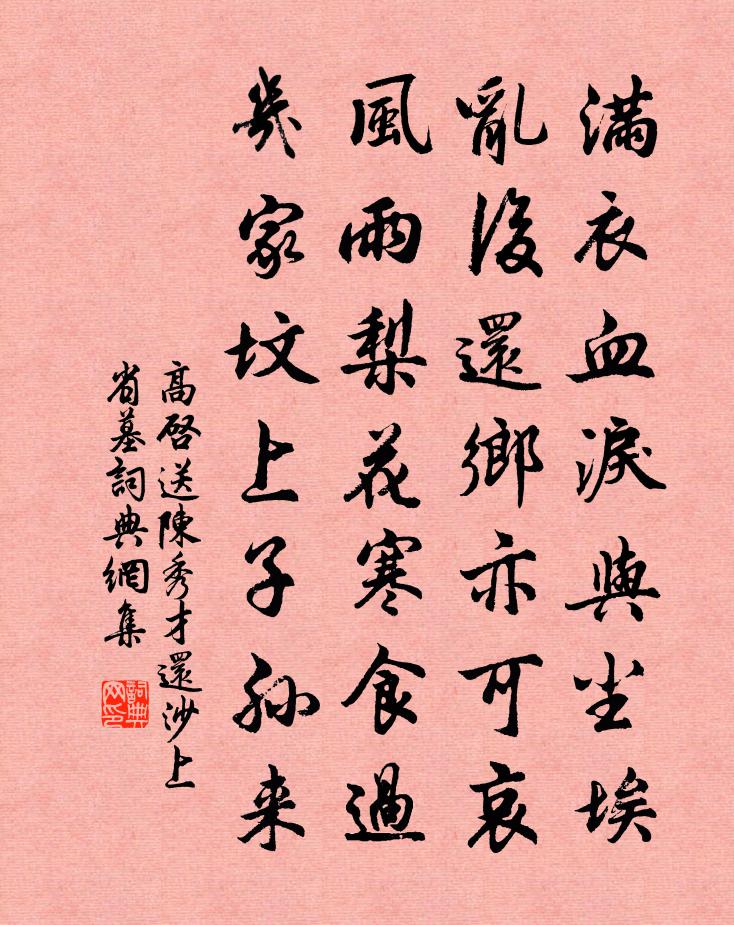 滿衣血淚與尘埃
亂後還鄉亦可哀
風雨梨花寒食過
幾家坟上子孙来
高啓送陳秀才還沙上
省墓詞典網集
詞典网印